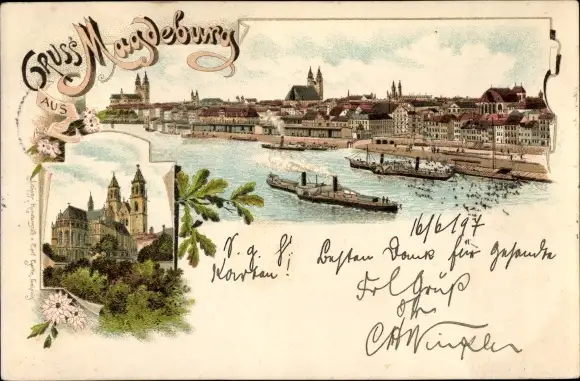 GRUSS
AUS
Magdeburg
16/6/97
V. g. H! Besten Dank für gesandte
Karten!
Frl Gruß
Ihr
CHWinkler